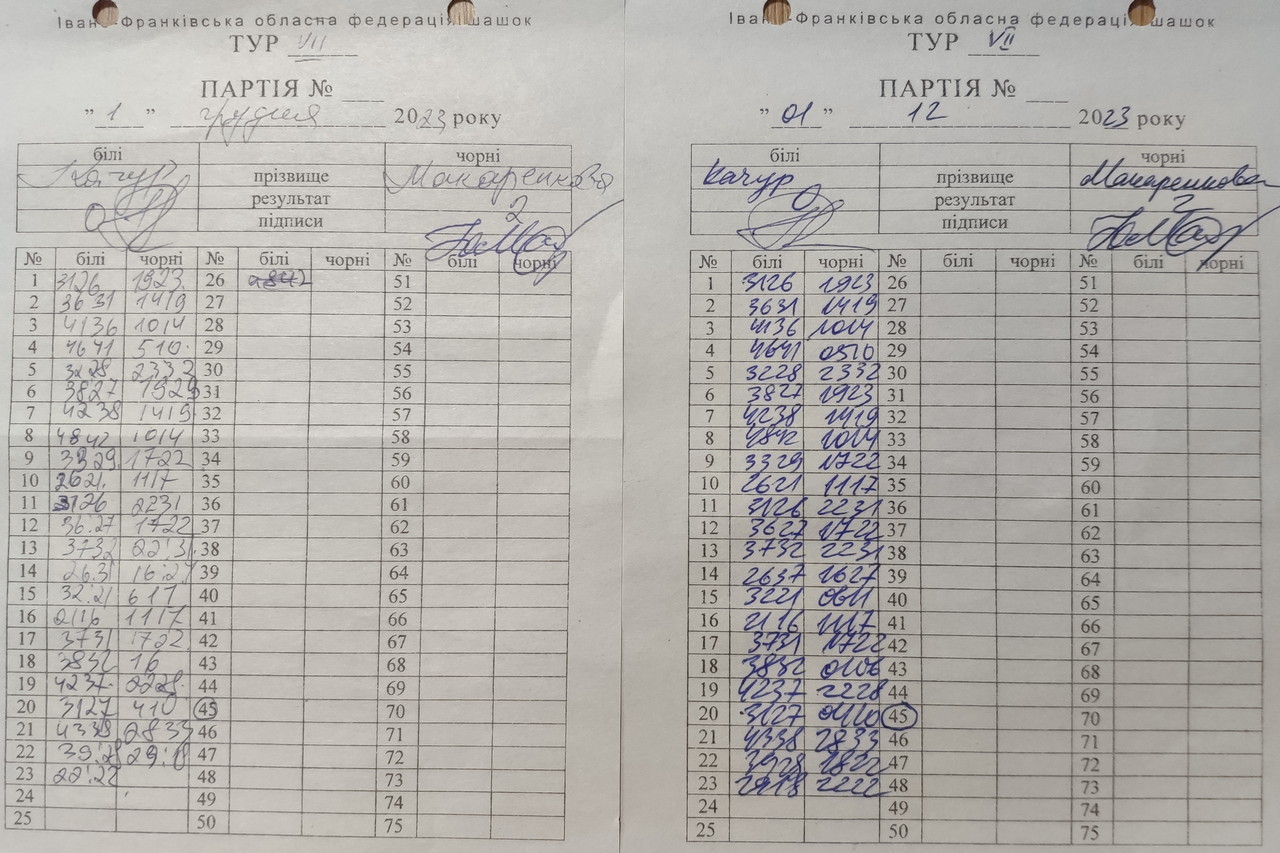 Івано-Франківська обласна федерація шашок
ТУР VII
ПАРТІЯ № ___
" 1 " грудня 2023 року
білі чорні
Качур прізвище Макаренкова
0 результат 2
підписи
№ білі чорні № білі чорні № білі чорні
1 3126 1923 26 51
2 3631 1419 27 52
3 4136 1014 28 53
4 4641 510 29 54
5 3228 2332 30 55
6 3827 1923 31 56
7 4238 1419 32 57
8 4842 1014 33 58
9 3329 1722 34 59
10 2621 1117 35 60
11 3126 2231 36 61
12 36:27 1722 37 62
13 3732 22:31 38 63
14 26:37 16:27 39 64
15 32:21 611 40 65
16 2116 1117 41 66
17 3731 1722 42 67
18 3832 16 43 68
19 4237 2228 44 69
20 3127 410 45 70
21 4338 2833 46 71
22 39:28 47 72
23 48 73
24 49 74
25 50 75
Івано-Франківська обласна федерація шашок
ТУР VII
ПАРТІЯ № ___
" 01 " 12 2023 року
білі чорні
Качур прізвище Макаренкова
0 результат 2
підписи
№ білі чорні № білі чорні № білі чорні
1 3126 1923 26 51
2 3631 1419 27 52
3 4136 1014 28 53
4 4641 0510 29 54
5 3228 2332 30 55
6 3827 1923 31 56
7 4238 1419 32 57
8 4842 1014 33 58
9 3329 1722 34 59
10 2621 1117 35 60
11 3126 2231 36 61
12 3627 1722 37 62
13 3732 2231 38 63
14 2637 1627 39 64
15 3221 0611 40 65
16 2116 1117 41 66
17 3731 1722 42 67
18 3832 0106 43 68
19 4237 2228 44 69
20 3127 0410 45 70
21 4338 2833 46 71
22 3928 1822 47 72
23 2918 2222 48 73
24 49 74
25 50 75